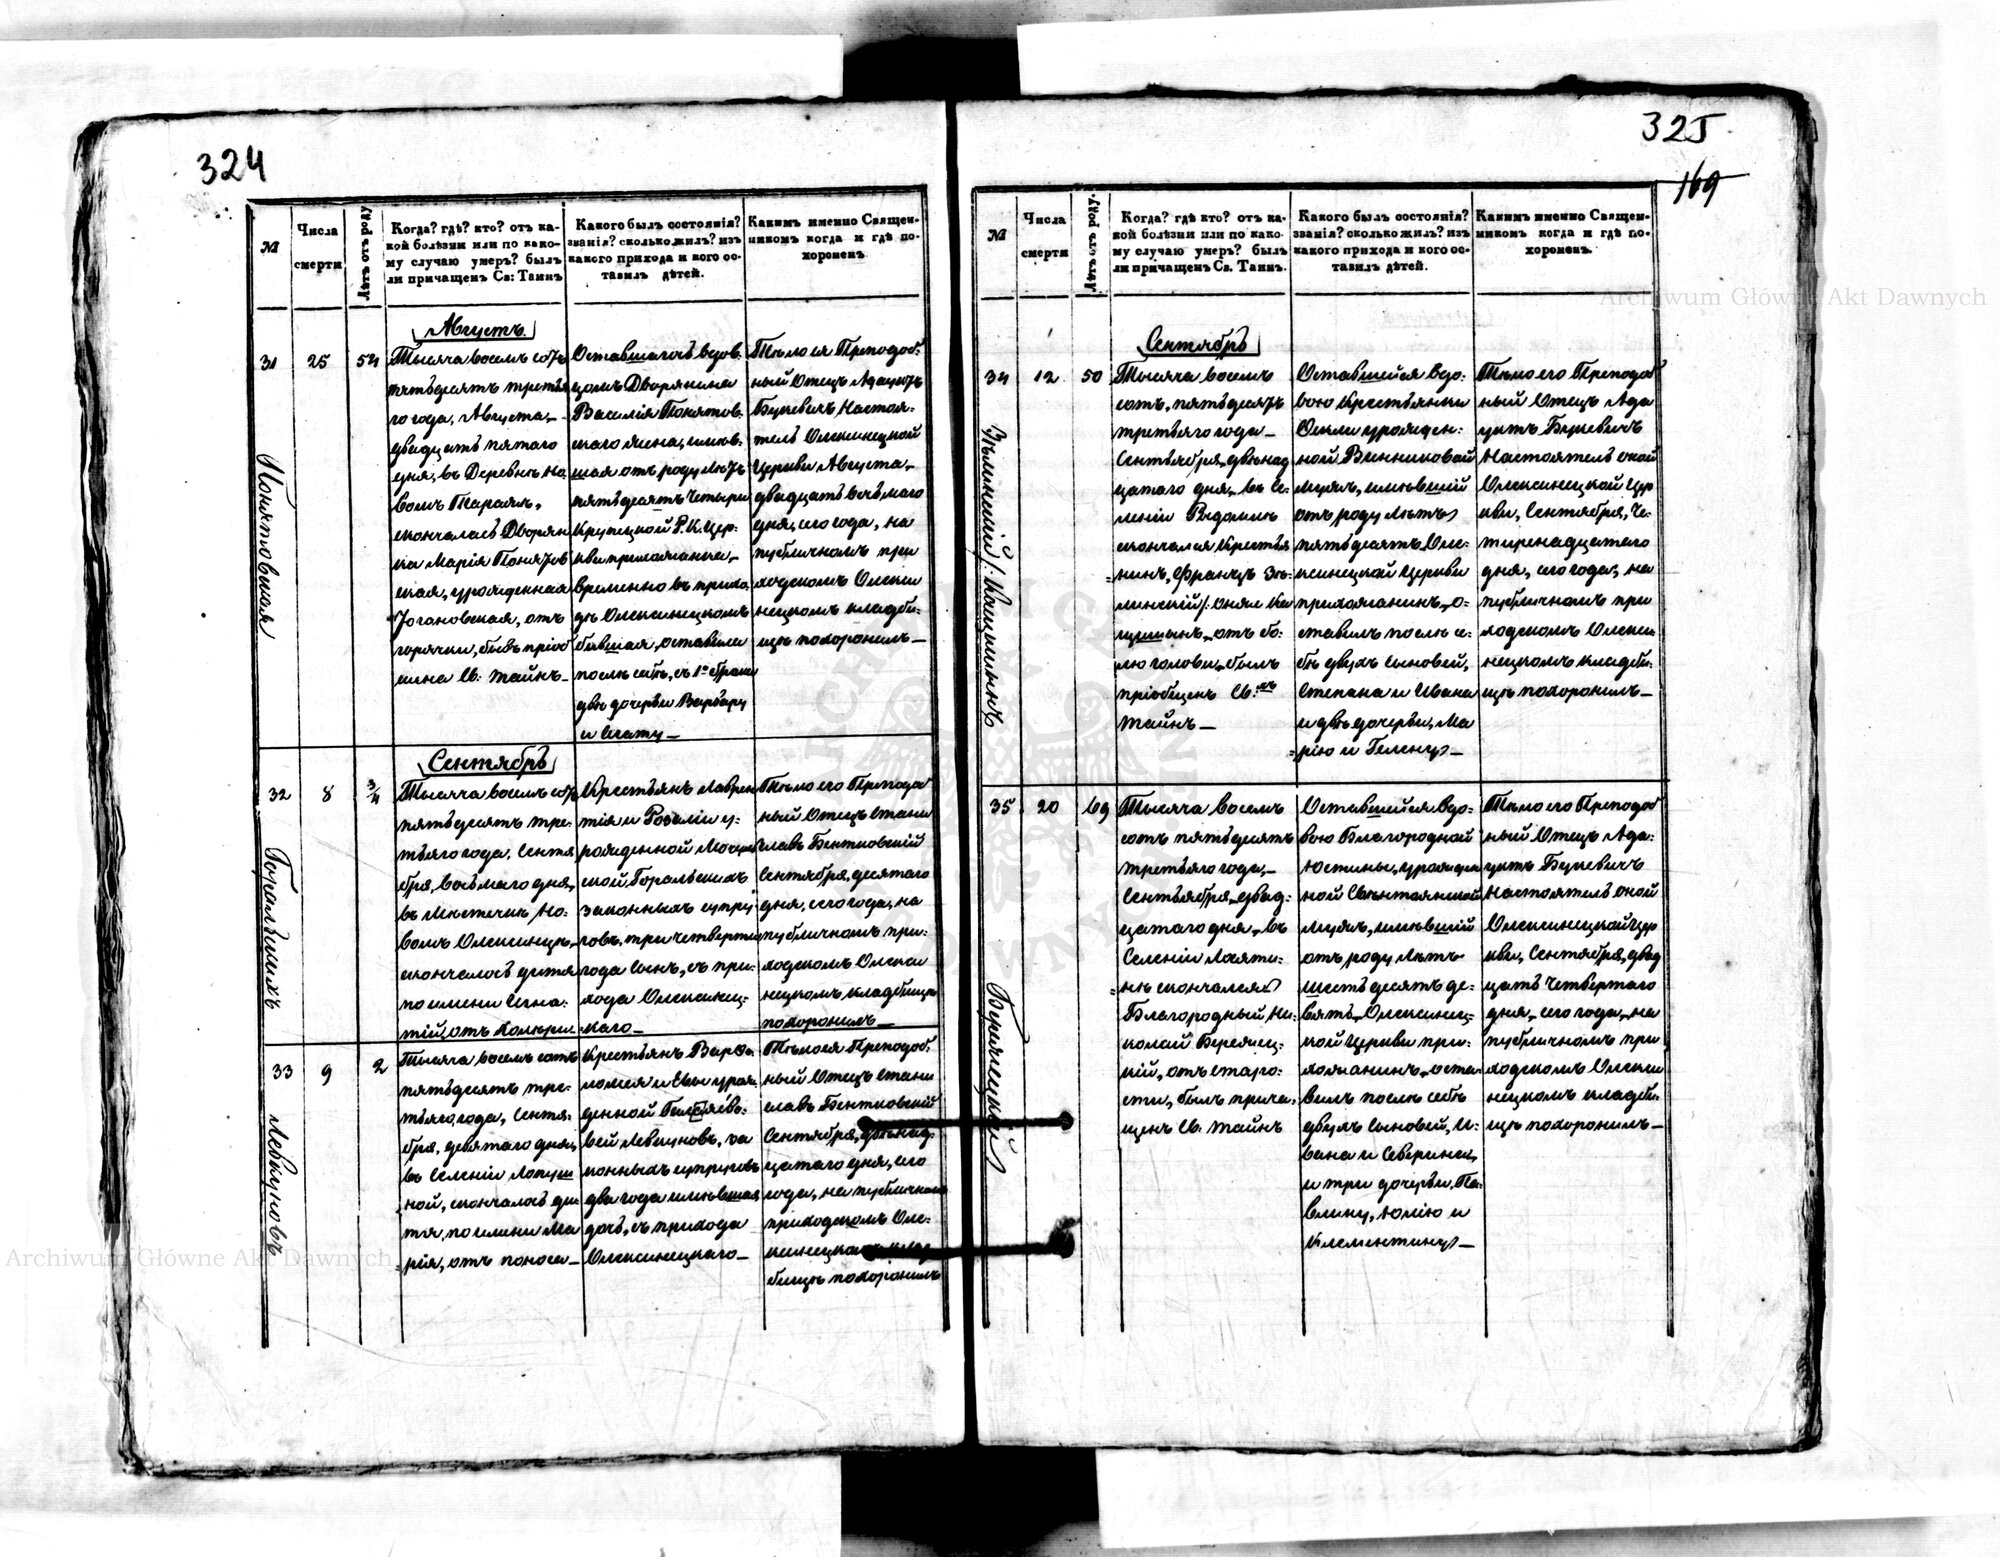 324
№
Числа
смерти
Лѣтъ отъ роду
Когда? гдѣ? кто? отъ ка-
кой болѣзни или по како-
му случаю умеръ? былъ
ли причащенъ Св: Таинъ
Какого былъ состоянія?
званія? сколько жилъ? изъ
какого прихода и кого ос-
тавилъ дѣтей.
Какимъ именно Священ-
никомъ когда и гдѣ по-
хороненъ
Августъ
31
25
54
Понятовская
Тысяча восемь сотъ
пятьдесятъ третья
го года, Августа,
двадцать пятаго
дня, въ Деревнѣ Но
вомъ Таражѣ,
скончалась Дворян
ка Марія Понятов
ская, урожденная
отъ
горячки, бывъ пріоб
щена Св. Тайнъ
Оставшагось вдов.
цомъ Дворянина
Василія Понятов.
скаго жена, имѣв.
шая отъ роду лѣтъ
пятьдесятъ четыри
Крупецкой Р. К. Цер.
кви прихожанка,
временно въ прихо.
дѣ Олексинецкомъ
бывшая, оставила
послѣ себѣ, съ 1го брака
двѣ дочерьи Варвару
и Агату
Тѣло ея Преподоб.
ный Отецъ Адауктъ
Буцевичъ Настоя.
тель Олексинецкой
Церкви Августа,
двадцать восьмаго
дня, сего года, на
публичномъ при
ходскомъ Олекси
нецкомъ кладби.
щѣ похоронилъ
Сентябрь
32
8
3/4
Горальскихъ
Тысяча восемь сотъ
пятьдесятъ тре.
тьяго года, Сентя
бря, восьмаго дня,
въ Мѣстечкѣ Но.
вомъ Олексинцѣ,
скончалось дитя
по имени Игна.
тій, отъ холери
Крестьянъ Лаврен
тія и Розаліи у.
рожденной
ской Горальскихъ
законныхъ супру
говъ, три четверти
года сынъ, съ при.
хода Олексинец.
каго
Тѣло его Преподоб
ный Отецъ Стани
славъ Бентковскій
Сентября, десятаго
дня, сего года, на
публичномъ при.
ходскомъ Олекси
нецкомъ кладбищѣ
похоронилъ
33
9
2
Левчуковъ
Тысяча восемь сотъ
пятьдесятъ тре.
тьяго года, Сентя.
бря, девятаго дня,
въ Селеніи Лопуш
ной, скончалось ди.
тя, по имени Ма
рія, отъ поноса
Крестьянъ Варѳо.
ломея и Евы урож.
денной
вой Левчуковъ, за
конныхъ супруговъ
два года имѣвшая
дочь, съ прихода
Олексинецкаго
Тѣло ея Преподоб.
ный Отецъ Стани
славъ Бентковскій
Сентября, двѣнад.
цатаго дня, сего
года, на публичномъ
приходскомъ Оле.
ксинецкомъ клад
бищѣ похоронилъ
325
169
№
Числа
смерти
Лѣтъ отъ роду.
Когда? гдѣ кто? отъ ка-
кой болѣзни или по како-
му случаю умеръ? былъ
ли причащенъ Св. Таинъ.
Какого былъ состоянія?
званія? сколько жилъ? изъ
какого прихода и кого ос-
тавилъ дѣтей.
Какимъ именно Священ-
никомъ когда и гдѣ по-
хороненъ.
Сентябрь
34
12
50
Тысяча восемь
сотъ, пятьдесятъ
третьяго года
Сентября, двѣнад
цатаго дня, въ Се.
леніи Рыдомлѣ
скончался Крестья
нинъ, Францъ Зѣ.
линскій /: онже Ка
отъ бо.
лю головы, былъ
пріобщенъ Св.хъ
Тайнъ
Оставшейся вдо.
вою Крестьянки
Феклы урожден.
ной Винниковой
мужъ, имѣвшій
отъ роду лѣтъ
пятьдесятъ, Оле.
ксинецкой Церкви
прихожанинъ, о.
ставилъ послѣ се.
бѣ двухъ сыновей,
Степана и Ивана
и двѣ дочерьи, Ма
рію и Гелену
Тѣло его Преподоб
ный Отецъ Ада
уктъ Буцевичъ
Настоятель оной
Олексинецкой Цер
кви, Сентября, че.
тирнадцатаго
дня, сего года, на
публичномъ при
ходскомъ Олекси
нецкомъ кладби.
щѣ похоронилъ
35
20
69
Бережецкій
Тысяча восемь
сотъ пятьдесятъ
третьяго года,
Сентября, двад.
цатаго дня, въ
Селеніи Лояти.
нѣ скончался
Благородный, Ни.
колай Бережец.
кій, отъ старо.
сти, былъ прича.
щенъ Св. Тайнъ
Оставшейся вдо.
вою Благородной
Юстины, урожден
ной Свентожицкой
мужъ, имѣвшій
отъ роду лѣтъ
шестьдесятъ де.
вять, Олексинец.
кой Церкви при.
хожанинъ, оста
вилъ послѣ себѣ
двухъ сыновей, И.
вана и Северина,
и три дочерьи, Па.
влину, Юлію и
Клементину
Тѣло его Преподоб
ный Отецъ Ада.
уктъ Буцевичъ
Настоятель оной
Олексинецкой Цер
кви, Сентября, двад
цать четвертаго
дня, сего года, на
публичномъ при
ходскомъ Олекси
нецкомъ кладби.
щѣ похоронилъ
Archiwum Główne Akt Dawnych
Archiwum Główne Akt Dawnych